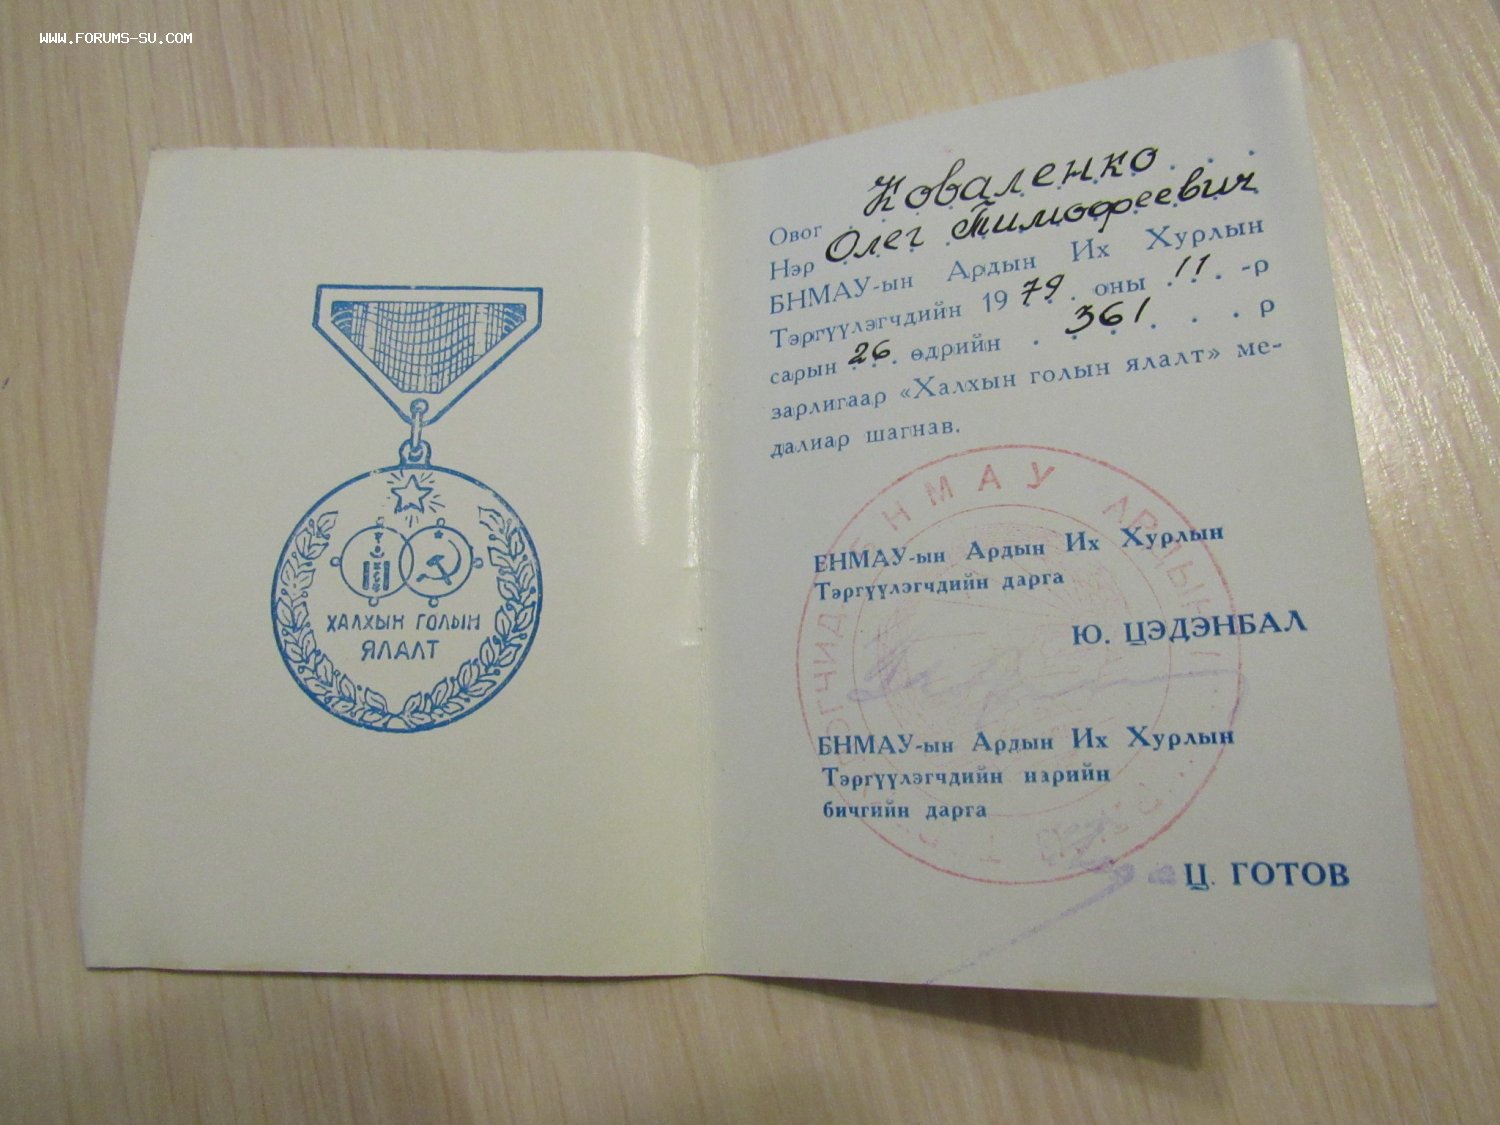 WWW.FORUMS-SU.COM
ХАЛХЫН ГОЛЫН
ЯЛАЛТ
Овог Коваленко
Нэр Олег Тимофеевич
БНМАУ-ын Ардын Их Хурлын
Тэргүүлэгчдийн 1979 оны 11-р
сарын 26 өдрийн 361 р
зарлигаар «Халхын голын ялалт» ме-
далиар шагнав.
БНМАУ АРДЫН
БНМАУ-ын Ардын Их Хурлын
Тэргүүлэгчдийн дарга
Ю. ЦЭДЭНБАЛ
БНМАУ-ын Ардын Их Хурлын
Тэргүүлэгчдийн нарийн
бичгийн дарга
Ц. ГОТОВ